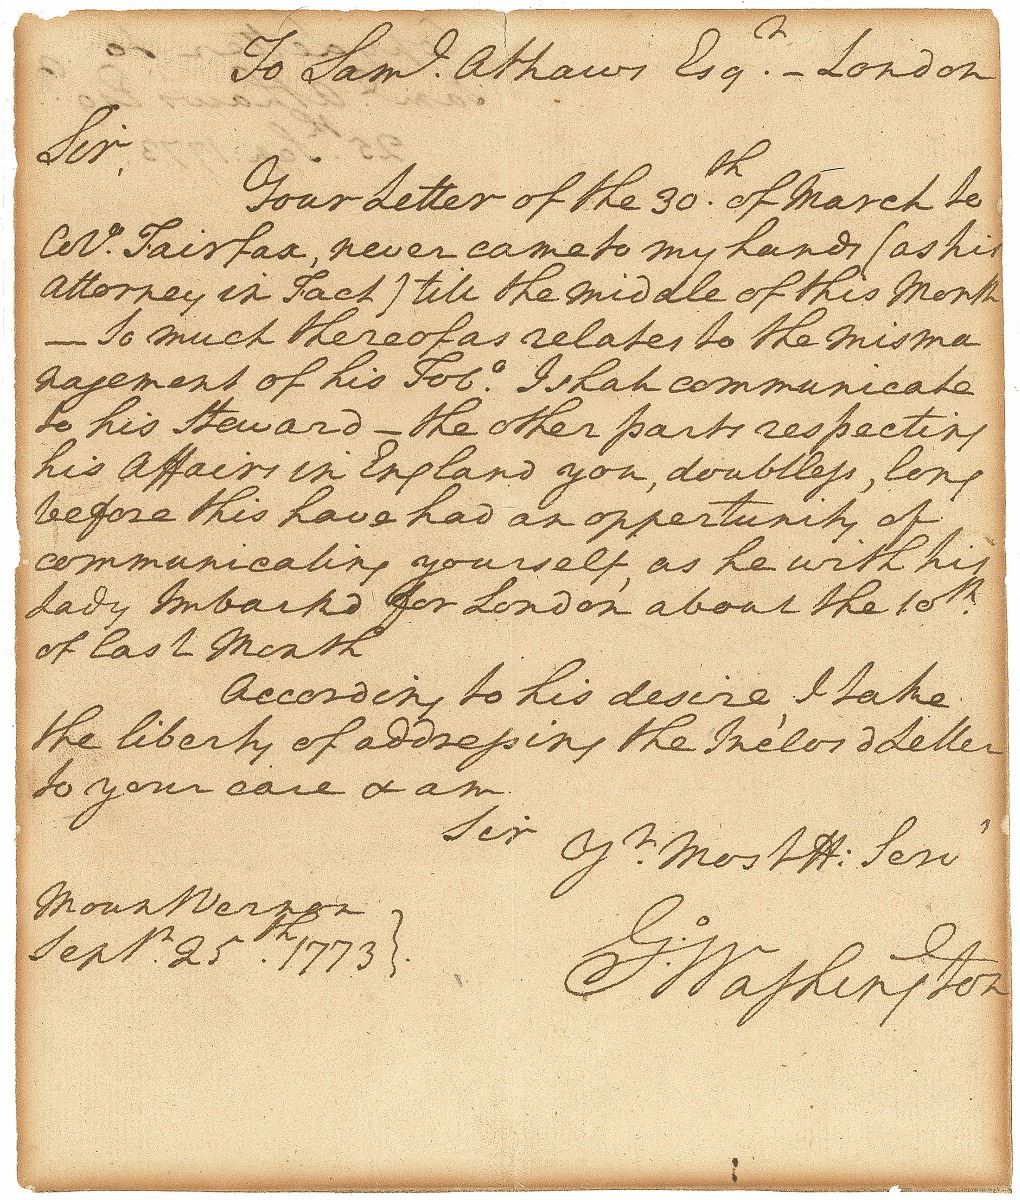 To Sam.l Athaws Esq.r – London
Sir,
Your Letter of the 30.th of March to
Colo. Fairfax, never came to my hands (as his
attorney in Fact) till the middle of this Month
— So much thereof as relates to the misma
nagement of his Tobo. I shall communicate
to his Steward – the other parts respecting
his Affairs in England you, doubtless, long
before this have had an oppertunity of
communicating yourself, as he with his
Lady Imbarkd for London about the 10th.
of last Month
According to his desire I take
the liberty of addressing the Inclosd Letter
to your care & am
Sir
Yr. Most H: Serv
Mount Vernon
Septr. 25th. 1773
Go: Washington